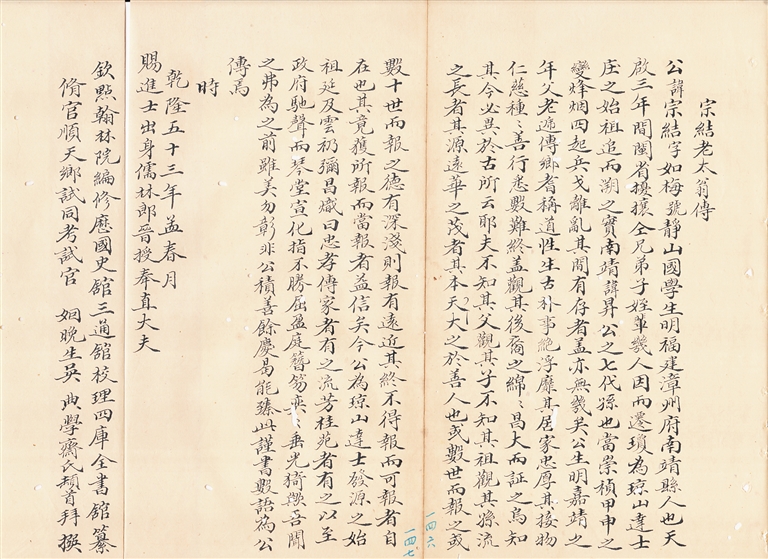 宗結老太翁傳
公諱宗結字如梅號靜山國學生明福建漳州府南靖縣人也天
啟三年間閩省擾攘仝兄弟子姪輩幾人因而遷瓊為瓊山達士
庄之始祖追而溯之實南靖諱昇公之七代孫也當崇禎甲申之
變烽烟四起兵戈離亂其間有存者蓋亦無幾矣公生明嘉靖之
年父老遞傳鄉耆稱道性生古朴事絕浮靡其居家忠厚其接物
仁慈種〻善行悉數難終蓋觀其後裔之綿〻昌大而証之烏知
其今必異於古所云耶夫不知其父觀其子不知其祖觀其孫流
之長者其源遠華之茂者其本天大之於善人也或數世而報之或
數十世而報之德有深淺則報有遠近其終不得報而可報者自
在也其竟獲所報而當報者益信矣今公為瓊山達士發源之始
祖延及雲礽彌昌熾曰忠孝傳家者有之流芳桂苑者有之以至
政府馳聲而琴堂宣化指不勝屈盈庭簪笏奕〻垂光猗歟吾聞
之弗為之前雖美勿彰非公積善餘慶曷能臻此謹書數語為公
傳焉
時
乾隆五十三年孟春月
賜進士出身儒林郎晉授奉直大夫
欽點翰林院編修歷國史館三通館校理四庫全書館纂
脩官順天鄉試同考試官 姻晚生吳典學齋氏頓首拜撰
一四六
一四七